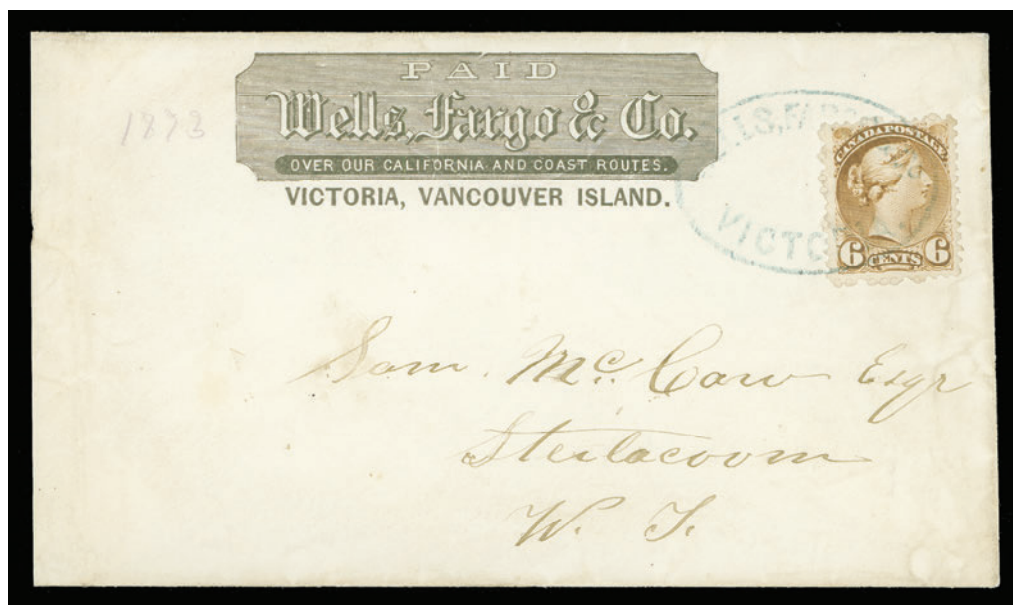 PAID
Wells, Fargo & Co.
OVER OUR CALIFORNIA AND COAST ROUTES.
VICTORIA, VANCOUVER ISLAND.
1873
LLS, FARGO
VICTO
CANADA POSTAGE
6 CENTS 6
Sam. McCaw Esqr
Steilacoom
W. T.